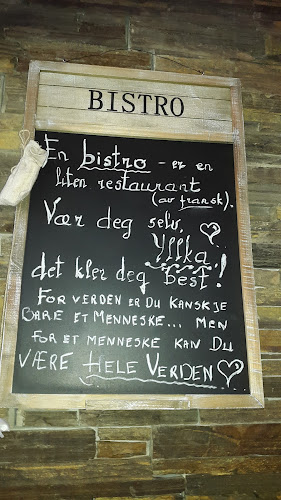 BISTRO
En bistro - er en
liten restaurant
(av fransk).
Vær deg selv,
Yllka,
det kler deg best!
FOR VERDEN ER DU KANSKJE
BARE ET MENNESKE... MEN
FOR ET MENNESKE KAN DU
VÆRE HELE VERDEN